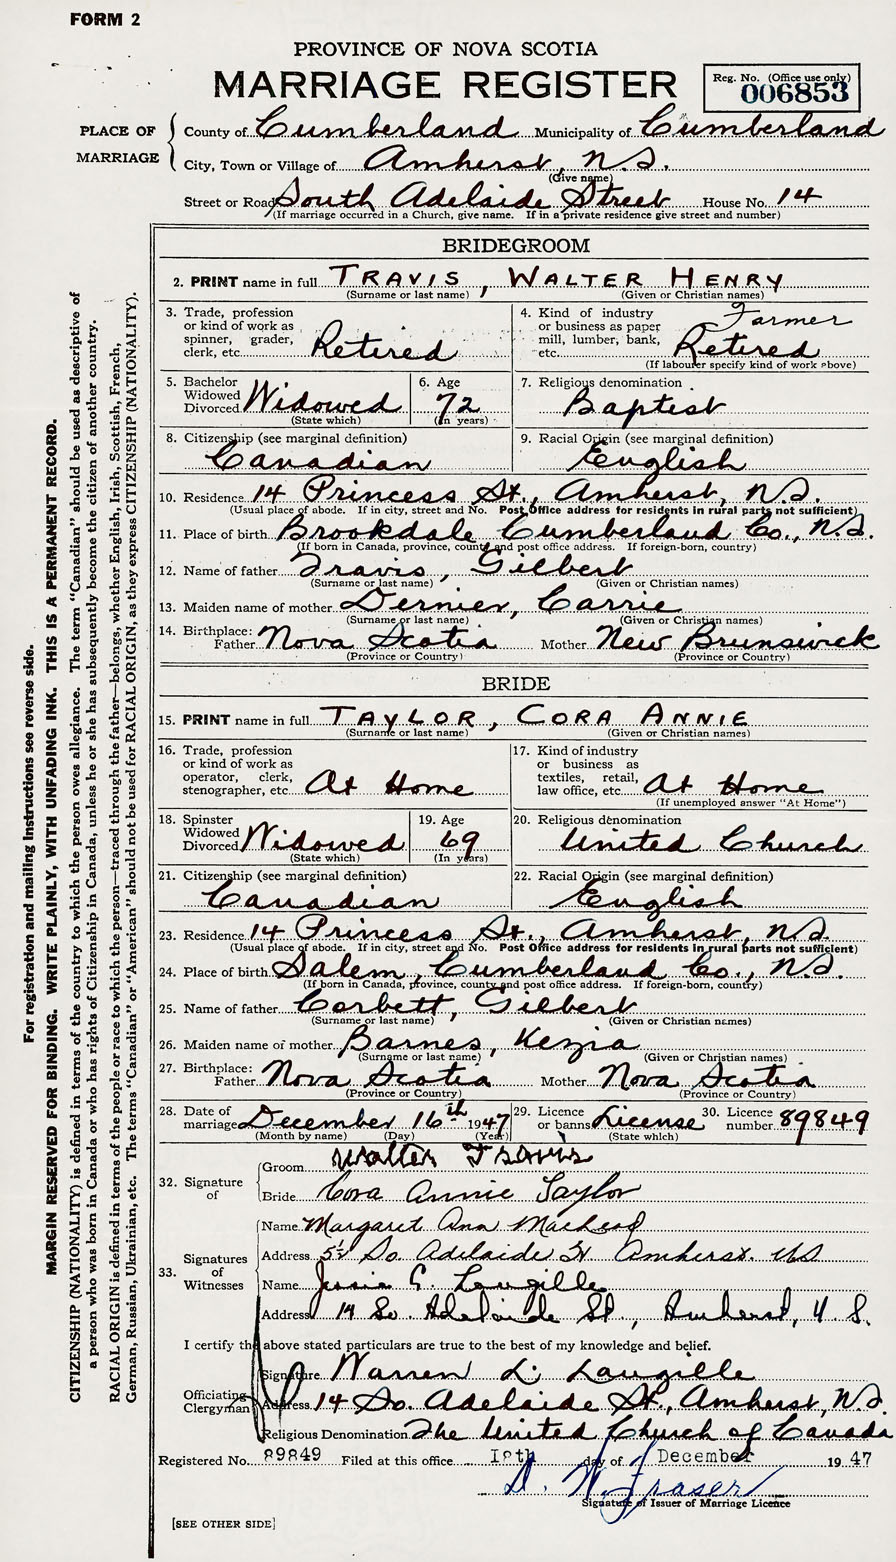 FORM 2
PROVINCE OF NOVA SCOTIA
MARRIAGE REGISTER
Reg. No. (Office use only)
006853
PLACE OF MARRIAGE
County of Cumberland Municipality of Cumberland
City, Town or Village of Amherst, N.S.
(Give name)
Street or Road South Adelaide Street House No. 14
(If marriage occurred in a Church, give name. If in a private residence give street and number)
BRIDEGROOM
2. PRINT name in full TRAVIS, WALTER HENRY
(Surname or last name) (Given or Christian names)
3. Trade, profession or kind of work as spinner, grader, clerk, etc. Retired
4. Kind of industry or business as paper mill, lumber, bank, etc. Farmer Retired
(If labourer specify kind of work above)
5. Bachelor Widowed Divorced Widowed
(State which)
6. Age 72
(In years)
7. Religious denomination
Baptist
8. Citizenship (see marginal definition)
Canadian
9. Racial Origin (see marginal definition)
English
10. Residence 14 Princess St., Amherst, N.S.
(Usual place of abode. If in city, street and No. Post Office address for residents in rural parts not sufficient)
11. Place of birth Brookdale Cumberland Co., N.S.
(If born in Canada, province, county and post office address. If foreign-born, country)
12. Name of father Travis, Gilbert
(Surname or last name) (Given or Christian names)
13. Maiden name of mother Dernier, Carrie
(Surname or last name) (Given or Christian names)
14. Birthplace: Father Nova Scotia Mother New Brunswick
(Province or Country) (Province or Country)
BRIDE
15. PRINT name in full TAYLOR, CORA ANNIE
(Surname or last name) (Given or Christian names)
16. Trade, profession or kind of work as operator, clerk, stenographer, etc. At Home
17. Kind of industry or business as textiles, retail, law office, etc. At Home
(If unemployed answer "At Home")
18. Spinster Widowed Divorced Widowed
(State which)
19. Age 69
(In years)
20. Religious denomination
United Church
21. Citizenship (see marginal definition)
Canadian
22. Racial Origin (see marginal definition)
English
23. Residence 14 Princess St., Amherst, N.S.
(Usual place of abode. If in city, street and No. Post Office address for residents in rural parts not sufficient)
24. Place of birth Salem, Cumberland Co., N.S.
(If born in Canada, province, county and post office address. If foreign-born, country)
25. Name of father Corbett, Gilbert
(Surname or last name) (Given or Christian names)
26. Maiden name of mother Barnes, Kezia
(Surname or last name) (Given or Christian names)
27. Birthplace: Father Nova Scotia Mother Nova Scotia
(Province or Country) (Province or Country)
28. Date of marriage December 16th 1947
(Month by name) (Day) (Year)
29. Licence or banns License
(State which)
30. Licence number 89849
32. Signature of
Groom Walter Travis
Bride Cora Annie Taylor
33. Signatures of Witnesses
Name Margaret Ann MacLeod
Address 5½ So Adelaide St Amherst. NS
Name Jessie E. Langille
Address 14 So. Adelaide St., Amherst, N.S.
I certify the above stated particulars are true to the best of my knowledge and belief.
Officiating Clergyman
Signature Warren L. Langille
Address 14 So. Adelaide St., Amherst, N.S.
Religious Denomination The United Church of Canada
Registered No. 89849 Filed at this office 18th day of December 1947
D. W. Fraser
Signature of Issuer of Marriage Licence
[SEE OTHER SIDE]
For registration and mailing instructions see reverse side.
MARGIN RESERVED FOR BINDING. WRITE PLAINLY, WITH UNFADING INK. THIS IS A PERMANENT RECORD.
CITIZENSHIP (NATIONALITY) is defined in terms of the country to which the person owes allegiance. The term "Canadian" should be used as descriptive of
a person who was born in Canada or who has rights of Citizenship in Canada, unless he or she has subsequently become the citizen of another country.
RACIAL ORIGIN is defined in terms of the people or race to which the person—traced through the father—belongs, whether English, Irish, Scottish, French,
German, Russian, Ukrainian, etc. The terms "Canadian" or "American" should not be used for RACIAL ORIGIN, as they express CITIZENSHIP (NATIONALITY).